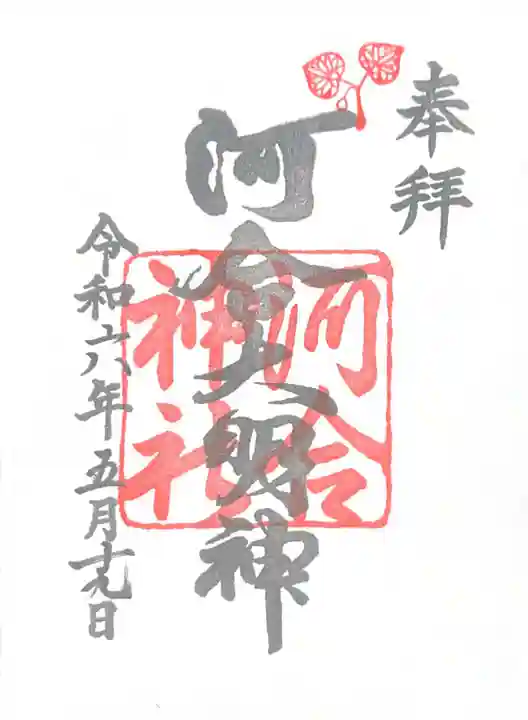 奉拝
河合大明神
河合神社
令和六年五月十九日